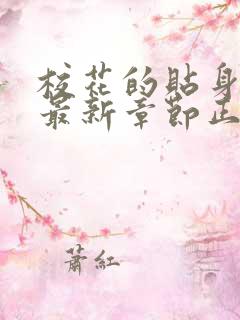 校花的贴身
最新章节正
萧红